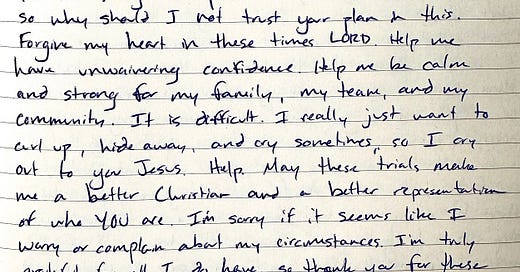 so why should I not trust your plan in this.
Forgive my heart in these times LORD. Help me
have unwaivering confidence. Help me be calm
and strong for my family, my team, and my
community. It is difficult. I really just want to
curl up, hide away, and cry sometimes, so I cry
out to you Jesus. Help. May these trials make
me a better Christian and a better representation
of who YOU are. I'm sorry if it seems like I
worry or complain about my circumstances. I'm truly
grateful for all I do have, so thank you for these